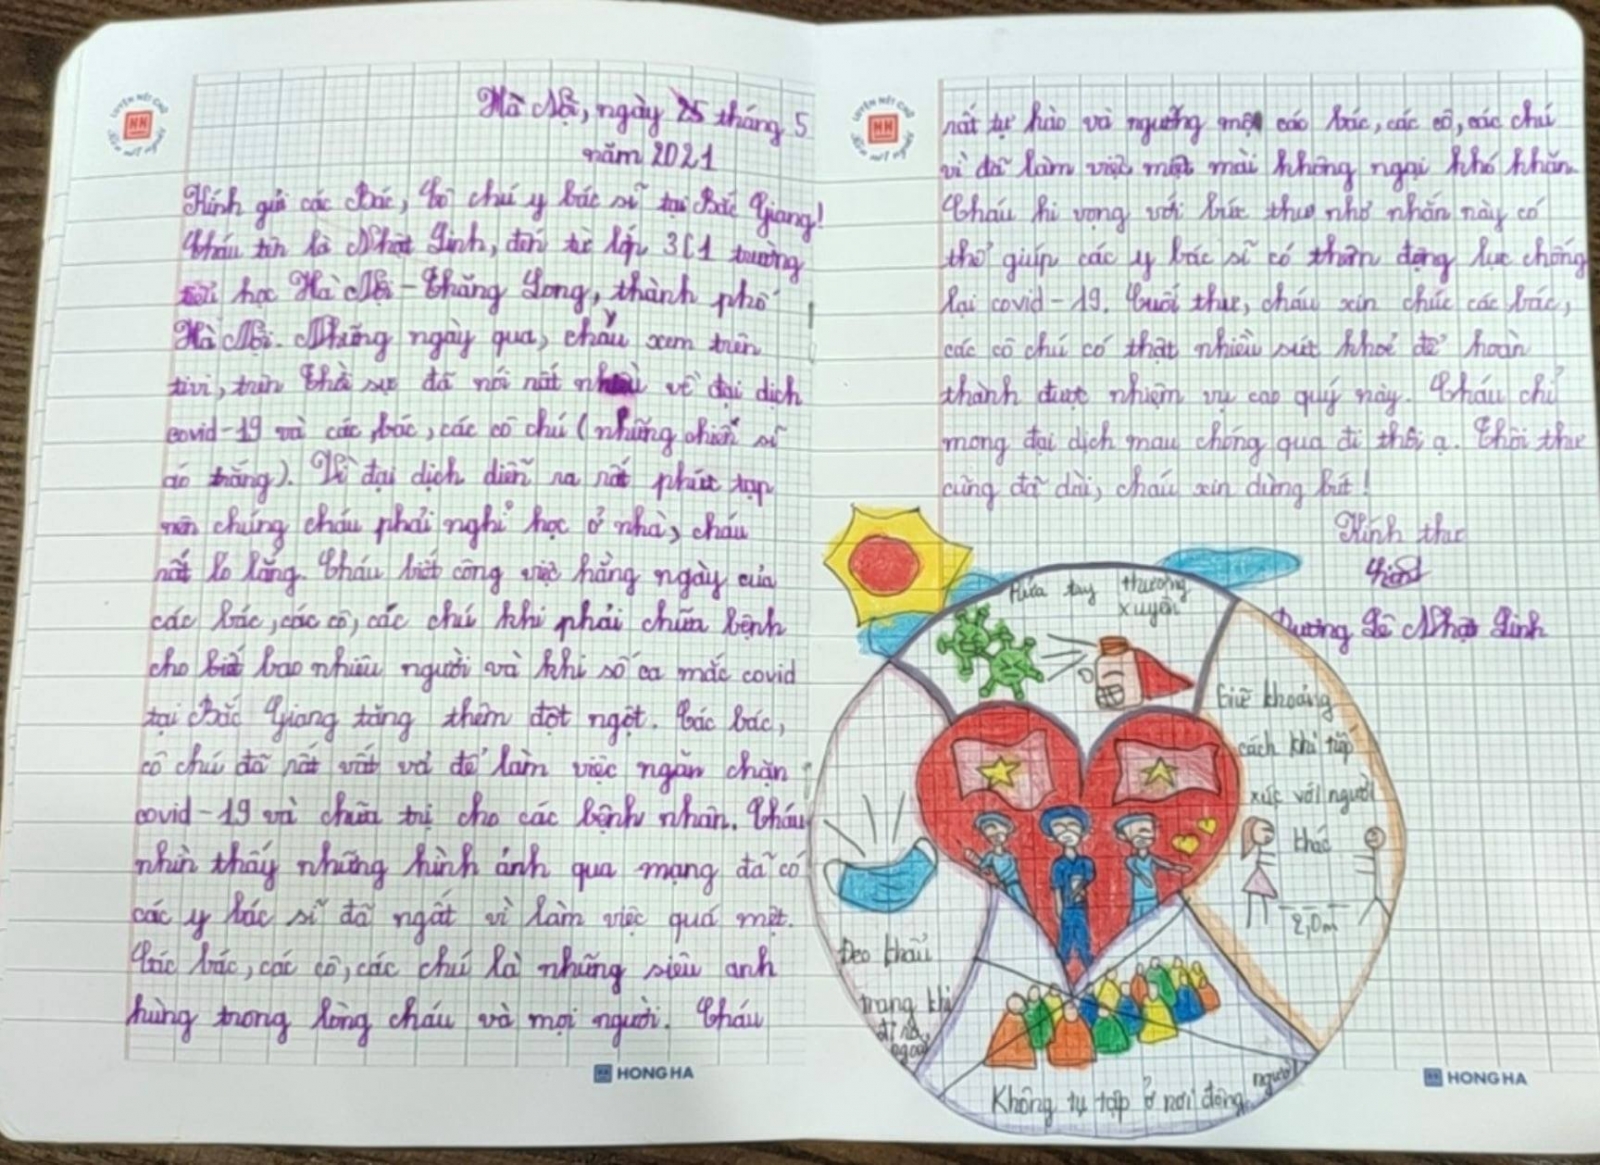 Hà Nội, ngày 25 tháng 5
năm 2021
Kính gửi các Bác, Cô chú y bác sĩ tại Bắc Giang!
Cháu tên là Nhật Linh, đến từ lớp 3C1 trường
tiểu học Hà Nội - Thăng Long, thành phố
Hà Nội. Những ngày qua, cháu xem trên
tivi, trên thời sự đã nói rất nhiều về đại dịch
covid-19 và các bác, các cô chú (những chiến sĩ
áo trắng). Vì đại dịch diễn ra rất phức tạp
nên chúng cháu phải nghỉ học ở nhà, cháu
rất lo lắng. Cháu biết công việc hằng ngày của
các bác, các cô, các chú khi phải chữa bệnh
cho biết bao nhiêu người và khi số ca mắc covid
tại Bắc Giang tăng thêm đột ngột. Các bác,
cô chú đã rất vất vả để làm việc ngăn chặn
covid-19 và chữa trị cho các bệnh nhân. Cháu
nhìn thấy những hình ảnh qua mạng đã có
các y bác sĩ đã ngất vì làm việc quá mệt.
Các bác, các cô, các chú là những siêu anh
hùng trong lòng cháu và mọi người. Cháu
HONG HA
rất tự hào và ngưỡng mộ các bác, các cô, các chú
vì đã làm việc miệt mài không ngại khó khăn.
Cháu hi vọng với bức thư nhỏ nhắn này có
thể giúp các y bác sĩ có thêm động lực chống
lại covid-19. Cuối thư, cháu xin chúc các bác,
các cô chú có thật nhiều sức khoẻ để hoàn
thành được nhiệm vụ cao quý này. Cháu chỉ
mong đại dịch mau chóng qua đi thôi ạ. Thôi thư
cũng đã dài, cháu xin dừng bút!
Kính thư
Dương Lê Nhật Linh
Rửa tay thường
xuyên
Giữ khoảng
cách khi tiếp
xúc với người
khác
2,0m
Đeo khẩu
trang khi
đi ra
ngoài
Không tụ tập ở nơi đông
người
HONG HA